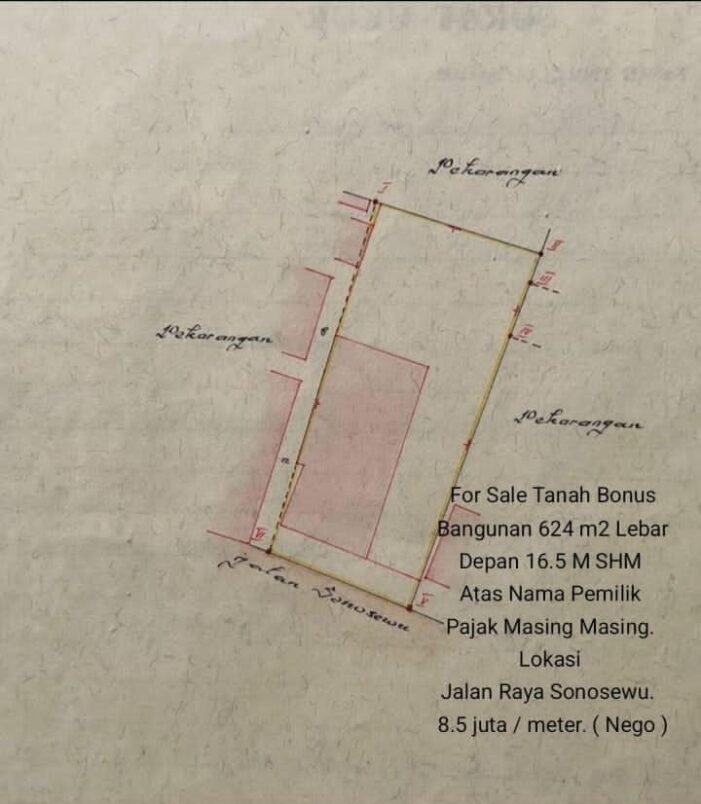 Pekarangan
I
II
III
IV
Pekarangan
Pekarangan
VI
V
Jalan Sonosewu
For Sale Tanah Bonus
Bangunan 624 m2 Lebar
Depan 16.5 M SHM
Atas Nama Pemilik
Pajak Masing Masing.
Lokasi
Jalan Raya Sonosewu.
8.5 juta / meter. ( Nego )